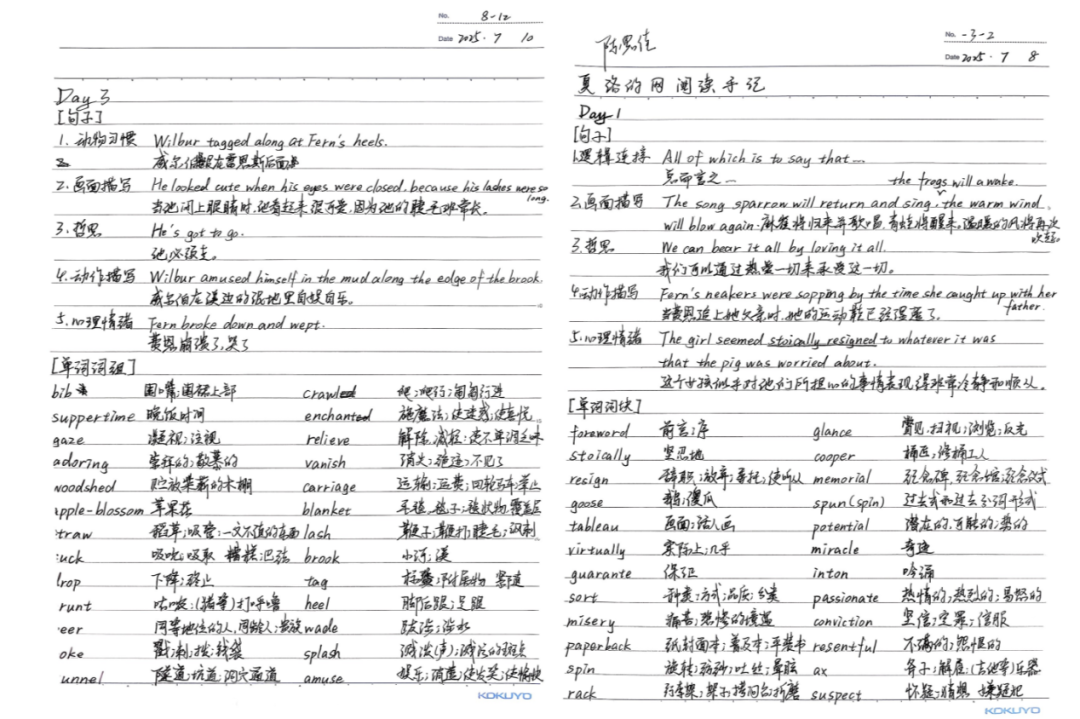 No. 8-12
Date 2025 · 7 10
Day 3
[句子]
1. 动物习惯 Wilbur tagged along at Fern's heels.
2. 画面描写 He looked cute when his eyes were closed, because his lashes were so long.
当他闭上眼睛时,他看起来很可爱,因为他的睫毛非常长。
3. 哲思 He's got to go.
他必须走。
4. 动作描写 Wilbur amused himself in the mud along the edge of the brook.
威尔伯在溪边的泥地里自娱自乐。
5. 心理情绪 Fern broke down and wept.
费恩崩溃了,哭了
[单词词组]
bib 围嘴;围裙上部 crawled 爬;爬行;匍匐行进
suppertime 晚饭时间 enchanted 施魔法;使迷惑;使喜悦
gaze 凝视;注视 relieve 解除,减轻;使不单调乏味
adoring 崇拜的;敬慕的 vanish 消失;绝迹;不见了
woodshed 贮放柴薪的木棚 carriage 运输;运费;四轮马车;举止
pple-blossom 苹果花 blanket 毛毯,毯子;毯状物;覆盖层
traw 稻草;吸管;一文不值的东西 lash 鞭子;鞭打;睫毛;讽刺
uck 吸吮;吸取 brook 小河;溪
rop 下降;终止 tag
runt 咕哝;(猪等)打呼噜 heel 脚后跟;足跟
eer 同等地位的人,同龄人;贵族 wade 跋涉;涉水
oke 戳;刺;拨;钱袋 splash 溅泼(声);溅泼的斑点
unnel 隧道;坑道;洞穴通道 amuse 娱乐;消遣;使发笑;使愉快
KOKUYO
陈思佳
No. -3-2
Date 2025 · 7 8
夏洛的网阅读手记
Day 1
[句子]
1.逻辑连接 All of which is to say that...
总而言之...
the frogs will awake.
2.画面描写 The song sparrow will return and sing, the warm wind
will blow again. 麻雀将归来并歌唱,青蛙将醒来,温暖的风将再次吹起。
3.哲思 We can bear it all by loving it all.
我们可以通过热爱一切来承受这一切。
4.动作描写 Fern's neakers were sopping by the time she caught up with her father.
当费恩追上她父亲时,她的运动鞋已经湿透了。
5.心理情绪 The girl seemed stoically resigned to whatever it was
that the pig was worried about.
这个女孩似乎对他们所担心的事情表现得非常冷静和顺从。
[单词词块]
foreword 前言;序 glance 瞥见;扫视;浏览;反光
stoically 坚忍地 cooper 桶匠;修桶工人
resign 辞职;放弃;委托;使听从 memorial 纪念碑,纪念馆;纪念仪式
goose 鹅;傻瓜 spun(spin) 过去式和过去分词形式
tableau 画面;活人画 potential 潜在的;可能的;势的
virtually 实际上;几乎 miracle 奇迹
guarante 保证 inton 吟诵
sort 种类;方式;品质;分类 passionate 热情的;热烈的;易怒的
misery 痛苦;悲惨的境遇 conviction 坚信;定罪;信服
paperback 纸封面本;普及本;平装书 resentful 不满的;怨恨的
spin 旋转;纺纱;吐丝;晕眩 ax 斧子;解雇;(吉他等)乐器
rack suspect 怀疑;猜想 嫌疑犯
KOKUYO